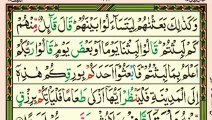 وَكَذٰلِكَ بَعَثْنٰهُمْ لِيَتَسَآءَلُوْا بَيْنَهُمْ قَالَ قَآئِلٌ مِّنْهُمْ
كَمْ لَبِثْتُمْ قَالُوْا لَبِثْنَا يَوْمًا اَوْ بَعْضَ يَوْمٍ قَالُوْا رَبُّكُمْ
اَعْلَمُ بِمَا لَبِثْتُمْ فَابْعَثُوْٓا اَحَدَكُمْ بِوَرِقِكُمْ هٰذِهٖٓ
اِلَى الْمَدِيْنَةِ فَلْيَنْظُرْ اَيُّهَآ اَزْكٰى طَعَامًا فَلْيَاْتِكُمْ